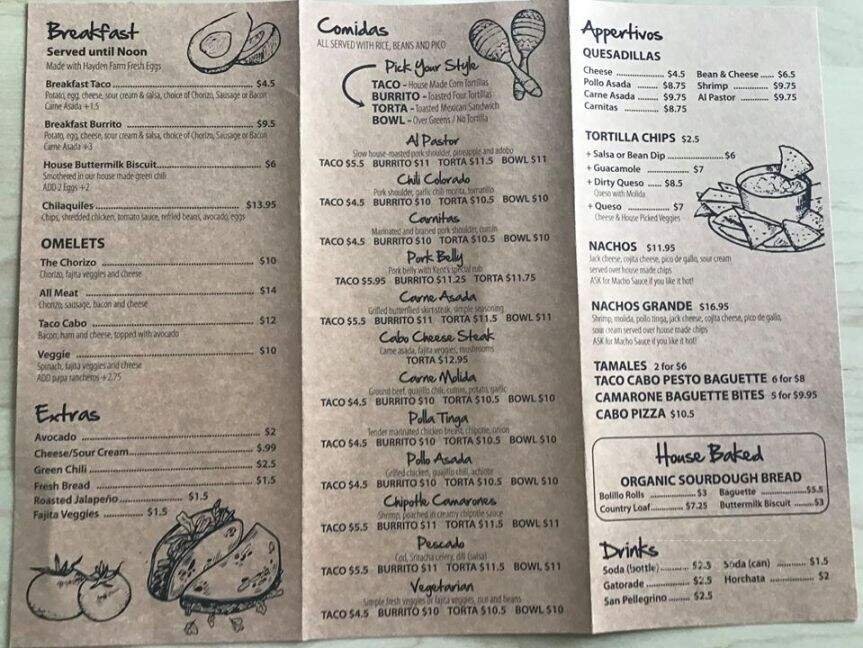 Breakfast
Served until Noon
Made with Hayden Farm Fresh Eggs
Breakfast Taco $4.5
Potato, egg, cheese, sour cream & salsa, choice of Chorizo, Sausage or Bacon
Carne Asada +1.5
Breakfast Burrito $9.5
Potato, egg, cheese, sour cream & salsa, choice of Chorizo, Sausage or Bacon
Carne Asada +3
House Buttermilk Biscuit $6
Smothered in our house made green chili
ADD 2 Eggs +2
Chilaquiles $13.95
Chips, shredded chicken, tomato sauce, refried beans, avocado, eggs
OMELETS
The Chorizo $10
Chorizo, fajita veggies and cheese
All Meat $14
Chorizo, sausage, bacon and cheese
Taco Cabo $12
Bacon, ham and cheese, topped with avocado
Veggie $10
Spinach, fajita veggies and cheese
ADD papa rancheros +2.75
Extras
Avocado $2
Cheese/Sour Cream $.99
Green Chili $2.5
Fresh Bread $1.5
Roasted Jalapeño $1.5
Fajita Veggies $1.5
Comidas
ALL SERVED WITH RICE, BEANS AND PICO
Pick Your Style
TACO - House Made Corn Tortillas
BURRITO - Toasted Four Tortillas
TORTA - Toasted Mexican Sandwich
BOWL - Over Greens / No Tortilla
Al Pastor
Slow house-roasted pork shoulder, pineapple and adobo
TACO $5.5 BURRITO $11 TORTA $11.5 BOWL $11
Chili Colorado
Pork shoulder, garlic chili morita, tomatillo
TACO $4.5 BURRITO $10 TORTA $10.5 BOWL $10
Carnitas
Marinated and braised pork shoulder, cumin
TACO $4.5 BURRITO $10 TORTA $10.5 BOWL $10
Pork Belly
Pork belly with Kent's special rub
TACO $5.95 BURRITO $11.25 TORTA $11.75
Carne Asada
Grilled butterflied skirt steak, simple seasoning
TACO $5.5 BURRITO $11 TORTA $11.5 BOWL $11
Cabo Cheese Steak
Carne asada, fajita veggies, mushrooms
TORTA $12.95
Carne Molida
Ground beef, guajillo chili, cumin, potato, garlic
TACO $4.5 BURRITO $10 TORTA $10.5 BOWL $10
Polla Tinga
Tender marinated chicken breast, chipotle, onion
TACO $4.5 BURRITO $10 TORTA $10.5 BOWL $10
Pollo Asada
Grilled chicken, guajillo chili, achiote
TACO $4.5 BURRITO $10 TORTA $10.5 BOWL $10
Chipotle Camarones
Shrimp, poached in creamy chipotle sauce
TACO $5.5 BURRITO $11 TORTA $11.5 BOWL $11
Pescado
Cod, Sriracha celery, dill (salsa)
TACO $5.5 BURRITO $11 TORTA $11.5 BOWL $11
Vegetarian
Simple fresh veggies or fajita veggies, rice and beans
TACO $4.5 BURRITO $10 TORTA $10.5 BOWL $10
Appertivos
QUESADILLAS
Cheese $4.5 Bean & Cheese $6.5
Pollo Asada $8.75 Shrimp $9.75
Carne Asada $9.75 Al Pastor $9.75
Carnitas $8.75
TORTILLA CHIPS $2.5
+ Salsa or Bean Dip $6
+ Guacamole $7
+ Dirty Queso $8.5
Queso with Molida
+ Queso $7
Cheese & House Picked Veggies
NACHOS $11.95
Jack cheese, cojita cheese, pico de gallo, sour cream
served over house made chips
ASK for Macho Sauce if you like it hot!
NACHOS GRANDE $16.95
Shrimp, molida, pollo tinga, jack cheese, cojita cheese, pico de gallo,
sour cream served over house made chips
ASK for Macho Sauce if you like it hot!
TAMALES 2 for $6
TACO CABO PESTO BAGUETTE 6 for $8
CAMARONE BAGUETTE BITES 5 for $9.95
CABO PIZZA $10.5
House Baked
ORGANIC SOURDOUGH BREAD
Bolillo Rolls $3 Baguette $5.5
Country Loaf $7.25 Buttermilk Biscuit $3
Drinks
Soda (bottle) $2.5 Soda (can) $1.5
Gatorade $2.5 Horchata $2
San Pellegrino $2.5